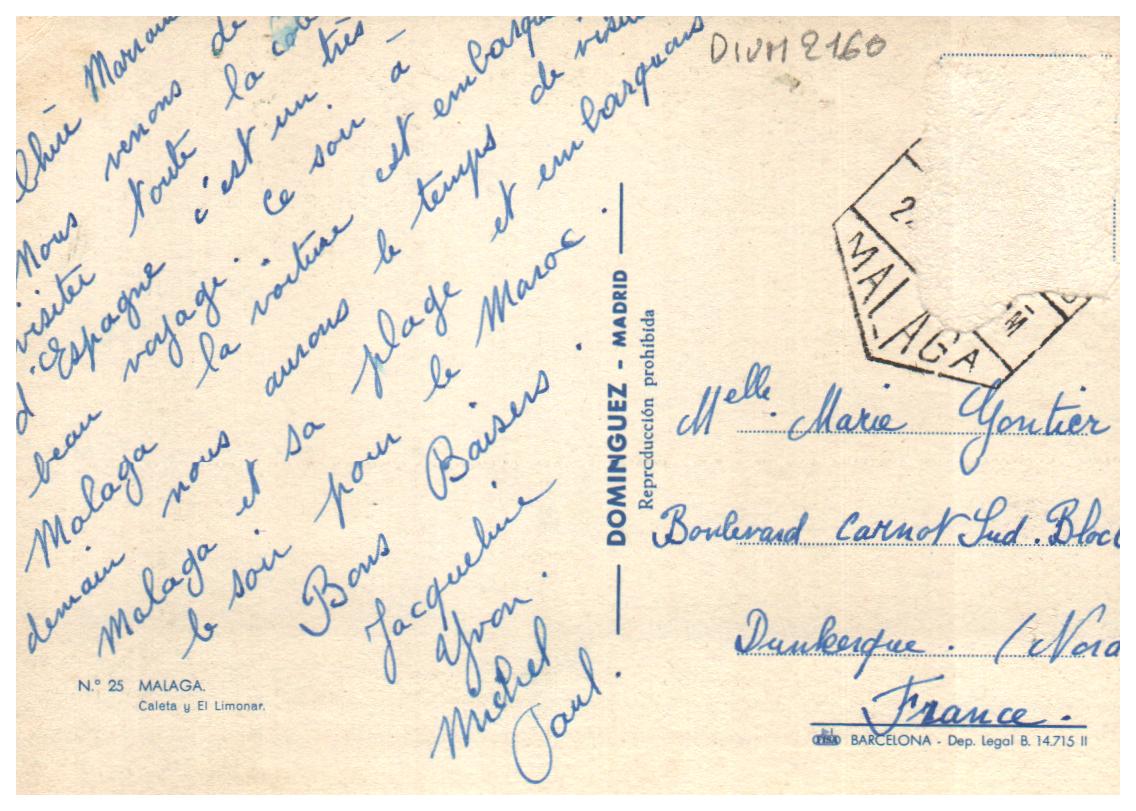 Chère Marrain
Nous venons de
visiter toute la côte
d'Espagne c'est un très
beau voyage. Ce soir à
Malaga la voiture est embarqu
demain nous aurons le temps de visi
Malaga et sa plage et embarquons
le soir pour le Maroc.
Bons Baisers.
Jacqueline
Yvon.
Michel
Paul.
N.º 25 MALAGA.
Caleta y El Limonar.
DOMINGUEZ - MADRID
Reproducción prohibida
DIVM 2160
MALAGA
Melle. Marie Gontier
Boulevard Carnot Sud. Bloc
Dunkerque. (Nord
France.
BARCELONA - Dep. Legal B. 14.715 II